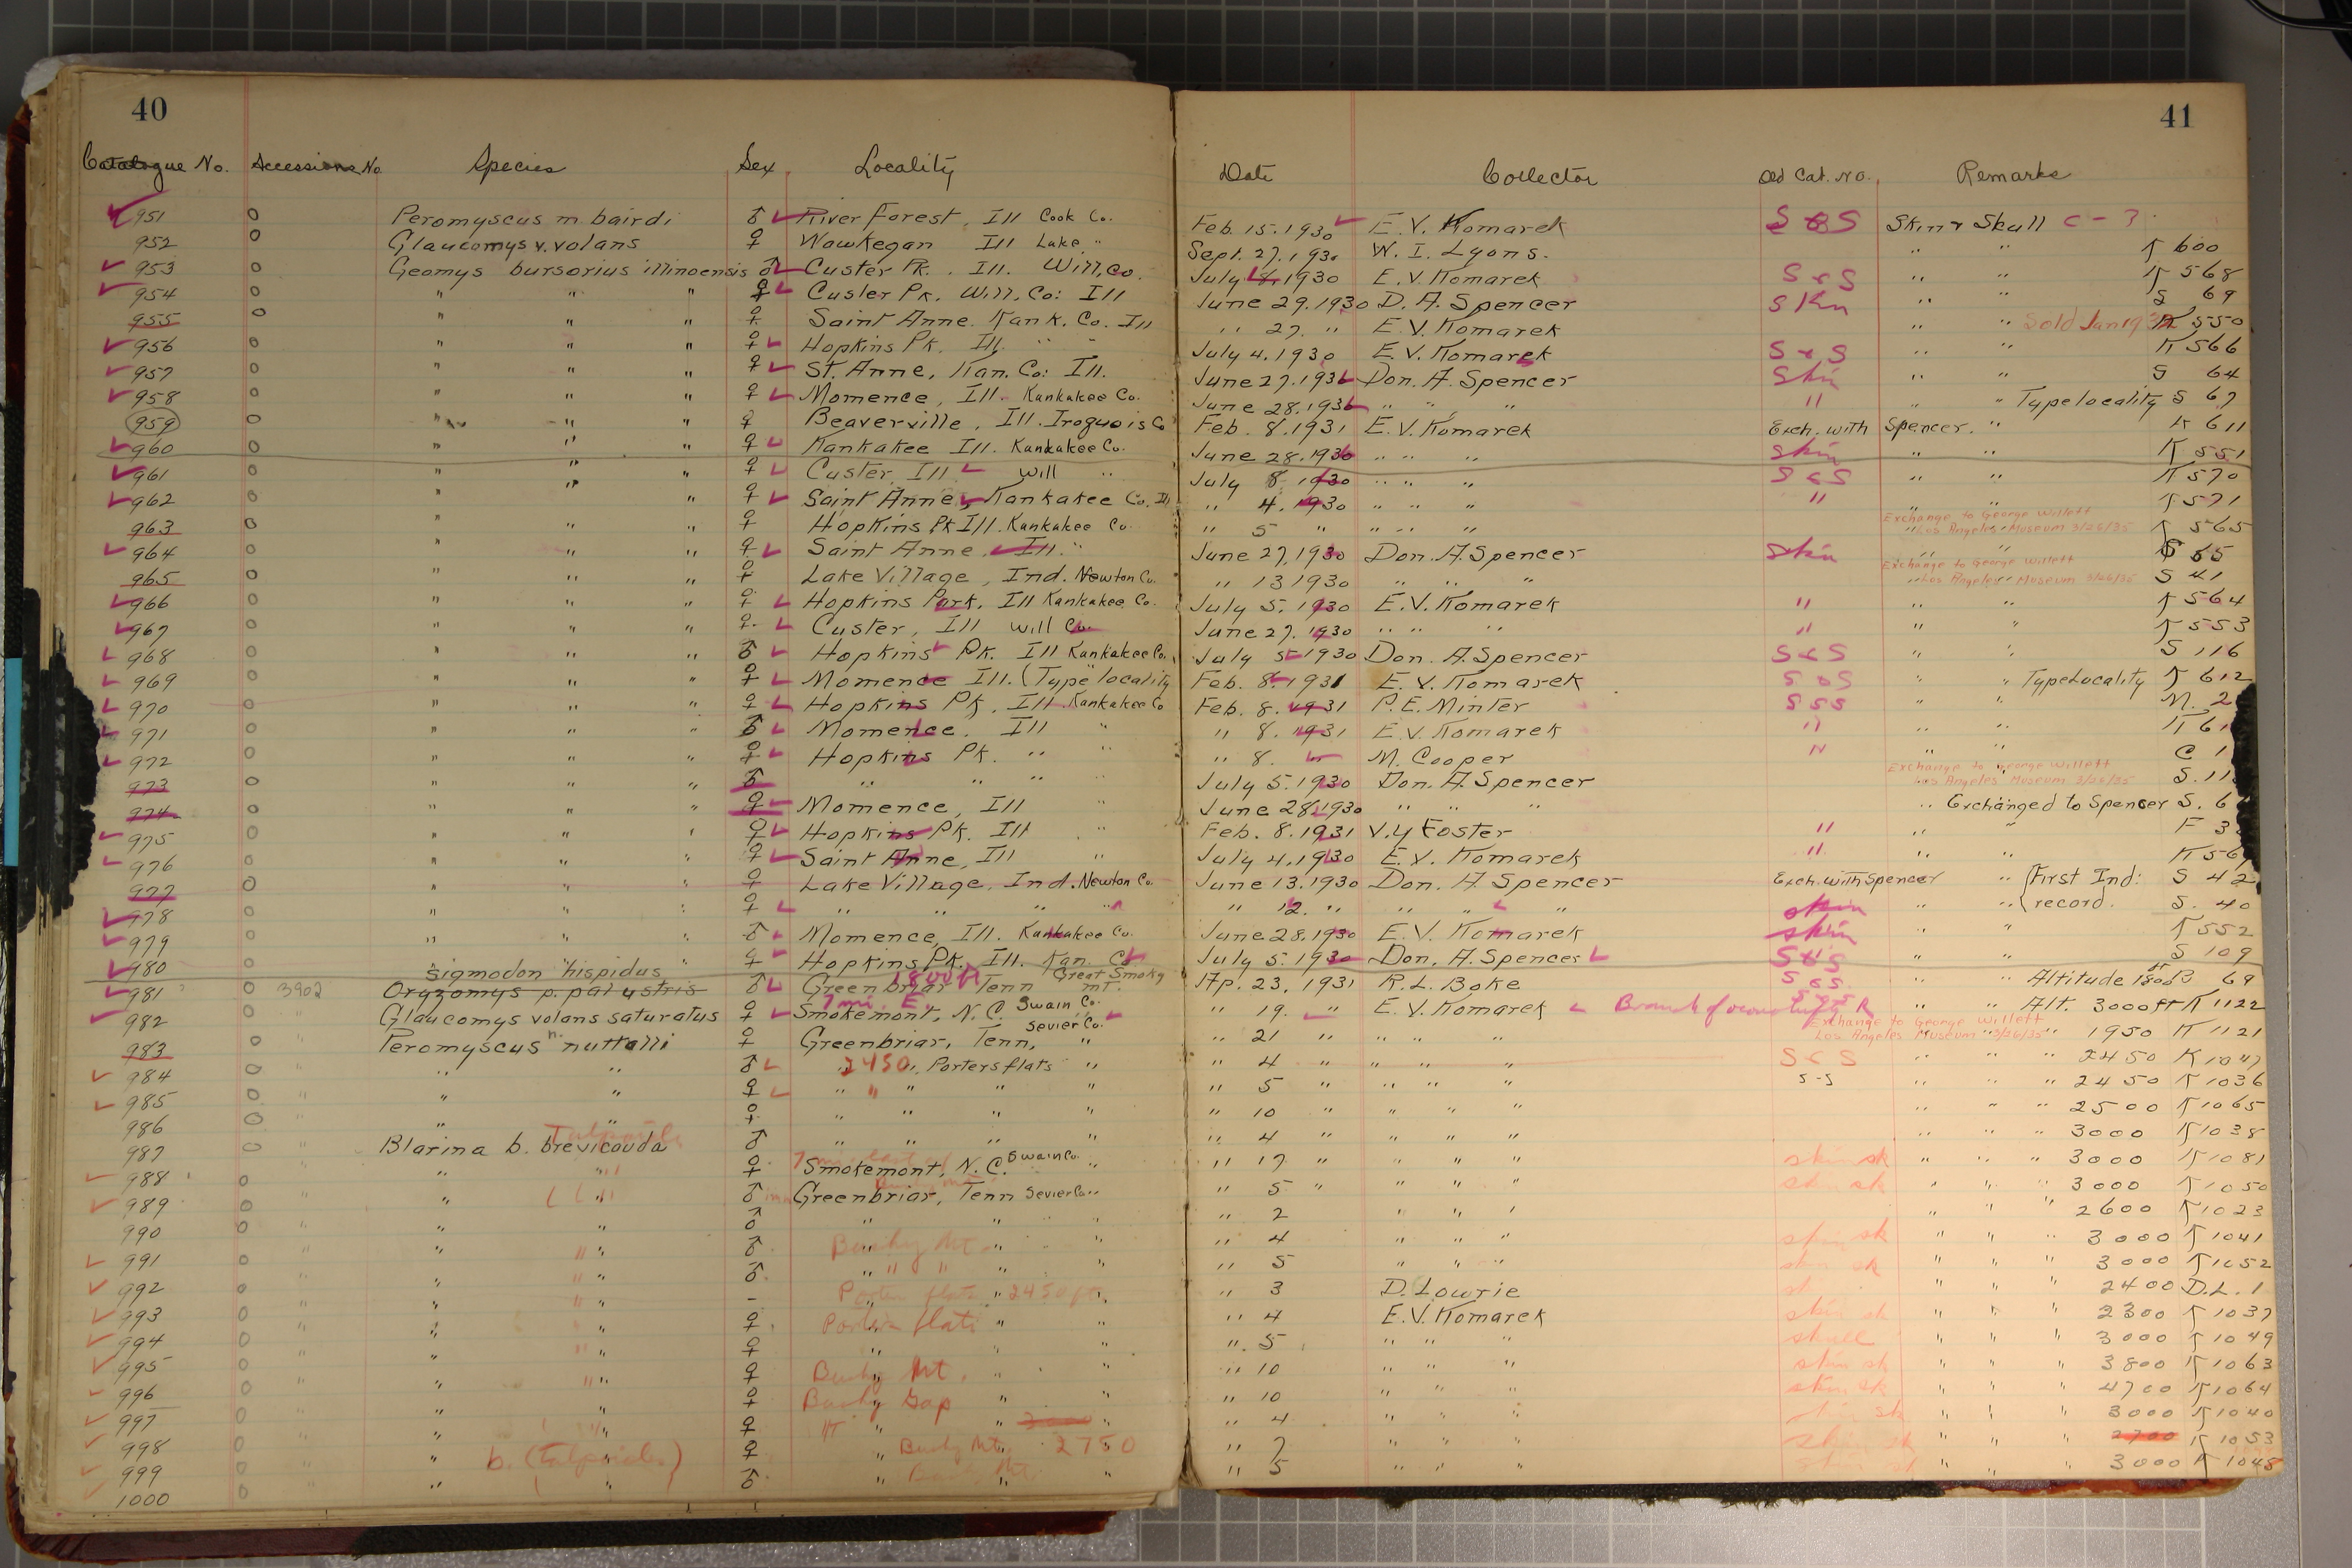 40
41
Catalogue No. Accessions No Species Sex Locality Date Collector Old Cat. No. Remarks
951 0 Peromyscus m. bairdi ♂ River Forest, Ill Cook Co. Feb. 15. 1930 E. V. Komarek S & S Skin & Skull C - 3
952 0 Glaucomys v. volans ♀ Wawkegan Ill Lake " Sept. 27. 1930 W. I. Lyons. " " K 600
953 0 Geomys bursorius illinoensis ♂ Custer Pk. Ill. Will, Co. July 1930 E. V. Komarek S & S " " K 568
954 0 " " " ♀ Custer Pk. Will. Co: Ill June 29. 1930 D. A. Spencer Skin " " S 69
955 0 " " " ♀ Saint Anne. Kank. Co. Ill " 27. " E. V. Komarek " " Sold Jan K 550
956 0 " " " ♀ Hopkins Pk. Ill. " " July 4. 1930 E. V. Komarek S & S " " K 566
957 0 " " " ♀ St. Anne, Kan. Co: Ill. June 27. 1930 Don. A. Spencer Skin " " S 64
958 0 " " " ♀ Momence, Ill. Kankakee Co. June 28. 1930 " " " " " " Type locality S 67
959 0 " " " ♀ Beaverville, Ill. Iroquois Co Feb. 8. 1931 E. V. Komarek Exch. with Spencer. " K 611
960 0 " " " ♀ Kankakee Ill. Kankakee Co. June 28. 1930 " " " Skin " " K 551
961 0 " " " ♀ Custer, Ill Will " July 8. 1930 " " " S & S " " K 570
962 0 " " " ♀ Saint Anne, Kankakee Co. Ill " 4. 1930 " " " " " " K 571
963 0 " " " ♀ Hopkins Pk Ill. Kankakee Co. " 5 " " " " Exchange to George Willett Los Angeles Museum 3/26/35 K 565
964 0 " " " ♀ Saint Anne, Ill. " June 27, 1930 Don. A. Spencer Skin " " S 65
965 0 " " " ♀ Lake Village, Ind. Newton Co. " 13 1930 " " " Exchange to George Willett Los Angeles Museum 3/26/35 S 41
966 0 " " " ♀ Hopkins Park, Ill Kankakee Co. July 5. 1930 E. V. Komarek " " " K 564
967 0 " " " ♀ Custer, Ill Will Co. June 27. 1930 " " " " " " K 553
968 0 " " " ♂ Hopkins Pk. Ill Kankakee Co. July 5 1930 Don. A. Spencer S & S " " S 116
969 0 " " " ♀ Momence Ill. (Type locality Feb. 8. 1931 E. V. Komarek S & S " " Type Locality K 612
970 0 " " " ♀ Hopkins Pk, Ill. Kankakee Co Feb. 8. 1931 P. E. Minter S & S " " M. 2
971 0 " " " ♂ Momence. Ill " " 8. 1931 E. V. Komarek " " " K 61
972 0 " " " ♀ Hopkins Pk. " " " 8. M. Cooper " " " C 1
973 0 " " " ♂ " " " " July 5. 1930 Don. A. Spencer Exchange to George Willett Los Angeles Museum 3/26/35 S. 11
974 0 " " " ♀ Momence, Ill " June 28. 1930 " " " " Exchanged to Spencer S. 6
975 0 " " " ♀ Hopkins Pk. Ill " Feb. 8. 1931 V. Y Foster " " " F 3
976 0 " " " ♀ Saint Anne, Ill " July 4. 1930 E. V. Komarek " " " K 56
977 0 " " " ♀ Lake Village, Ind. Newton Co. June 13. 1930 Don. A. Spencer Exch. with Spencer " (First Ind: S 42
978 0 " " " ♀ " " " " " 12. " " " " skin " " (record. S. 40
979 0 " " " ♂ Momence, Ill. Kankakee Co. June 28. 1930 E. V. Komarek skin " " K 552
980 0 " " " ♀ Hopkins Pk. Ill. Kan. Co July 5. 1930 Don. A. Spencer S & S " " S 109
Sigmodon hispidus 1800 ft Great Smoky
981 0 3902 Oryzomys p. palustris ♂ Greenbriar Tenn mt. Ap. 23, 1931 R. L. Boke S & S. " " Altitude 1800 ft B 69
7 mi. E. Swain Co.
982 0 " Glaucomys volans saturatus ♀ Smokemont, N. C. " 19. " E. V. Komarek Branch of R " " Alt. 3000 ft K 1122
983 0 " Peromyscus n. nuttalli ♀ Greenbriar, Tenn, Sevier Co. " " 21 " " " " Exchange to George Willett Los Angeles Museum 3/26/35 " 1950 K 1121
984 0 " " " ♂ 2450, Porters flats " " 4 " " " " S & S " " " 2450 K 1047
985 0 " " " ♀ " " " " " 5 " " " " S-S " " " 2450 K 1036
986 0 " " " ♀ " " " " " 10 " " " " " " " 2500 K 1065
987 0 " Blarina b. brevicauda ♂ " " " " " 4 " " " " " " " 3000 K 1038
988 0 " " " ♀ Smokemont, N. C. Swain Co. " " 17 " " " " skin sk " " " 3000 K 1081
989 0 " " " ♂ Greenbriar, Tenn Sevier Co. " " 5 " " " " skin sk " " " 3000 K 1050
990 0 " " " ♂ " " " " " 2 " " " " " " 2600 K 1023
991 0 " " " ♂ Bushy Mt. " " " 4 " " " skin sk " " " 3000 K 1041
992 0 " " " ♂ " " " " " 5 " " " skin sk " " " 3000 K 1052
993 0 " " " - Porter flats 2450 ft. " " 3 D. Lowrie sk " " " 2400 D. L. 1
994 0 " " " ♀ Porter flats " " " 4 E. V. Komarek skin sk " " " 2300 K 1037
995 0 " " " ♀ " " " " 5 " " " skull " " " 3000 K 1049
996 0 " " " ♀ Bushy Mt. " " " 10 " " " skin sk " " " 3800 K 1063
997 0 " " " ♀ Bushy Gap " " " 10 " " " skin sk " " " 4700 K 1064
998 0 " " " ♀ " " " " 4 " " " skin sk " " " 3000 K 1040
999 0 " " b. (talpoides) " ♀ " Bushy Mt. 2750 " 7 " " " skin sk " " 2700 K 1053
1000 0 " " " ♂ " Bushy Mt. " " 5 " " " skin sk " " " 3000 K 1048